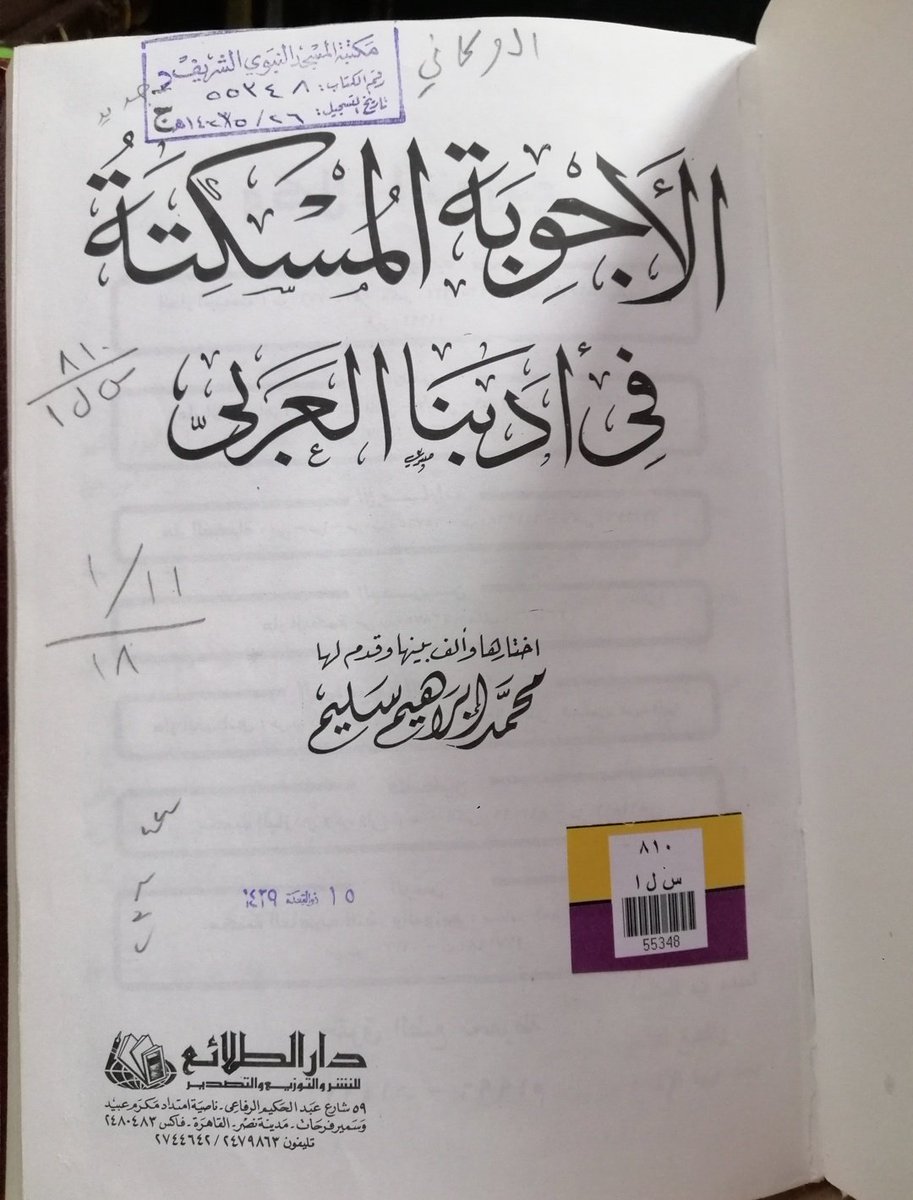 مكتبة المسجد النبوي الشريف
رقم الكتاب: ٥٥٣٤٨
تاريخ التسجيل:
الأَجْوِبَة المُسْكِتَةُ
فِى أدَبنَا العَرَبِىّ
٨١٠
س ل ا
١/١١
١٨
اختارها وألف بينها وقدم لها
محمَّد إبرَاهيم سَليم
١٥ ذوالقعدة ١٤٢٩
٨١٠
س ل ا
55348
دار الطلائع
للنشر والتوزيع والتصدير
٥٩ شارع عبد الحكيم الرفاعى - ناصية امتداد مكرم عبيد
وسمير فرحات - مدينة نصر - القاهرة - فاكس ٢٤٨٠٤٨٣
تليفون ٢٤٧٩٨٦٣ / ٢٧٤٤٦٤٢